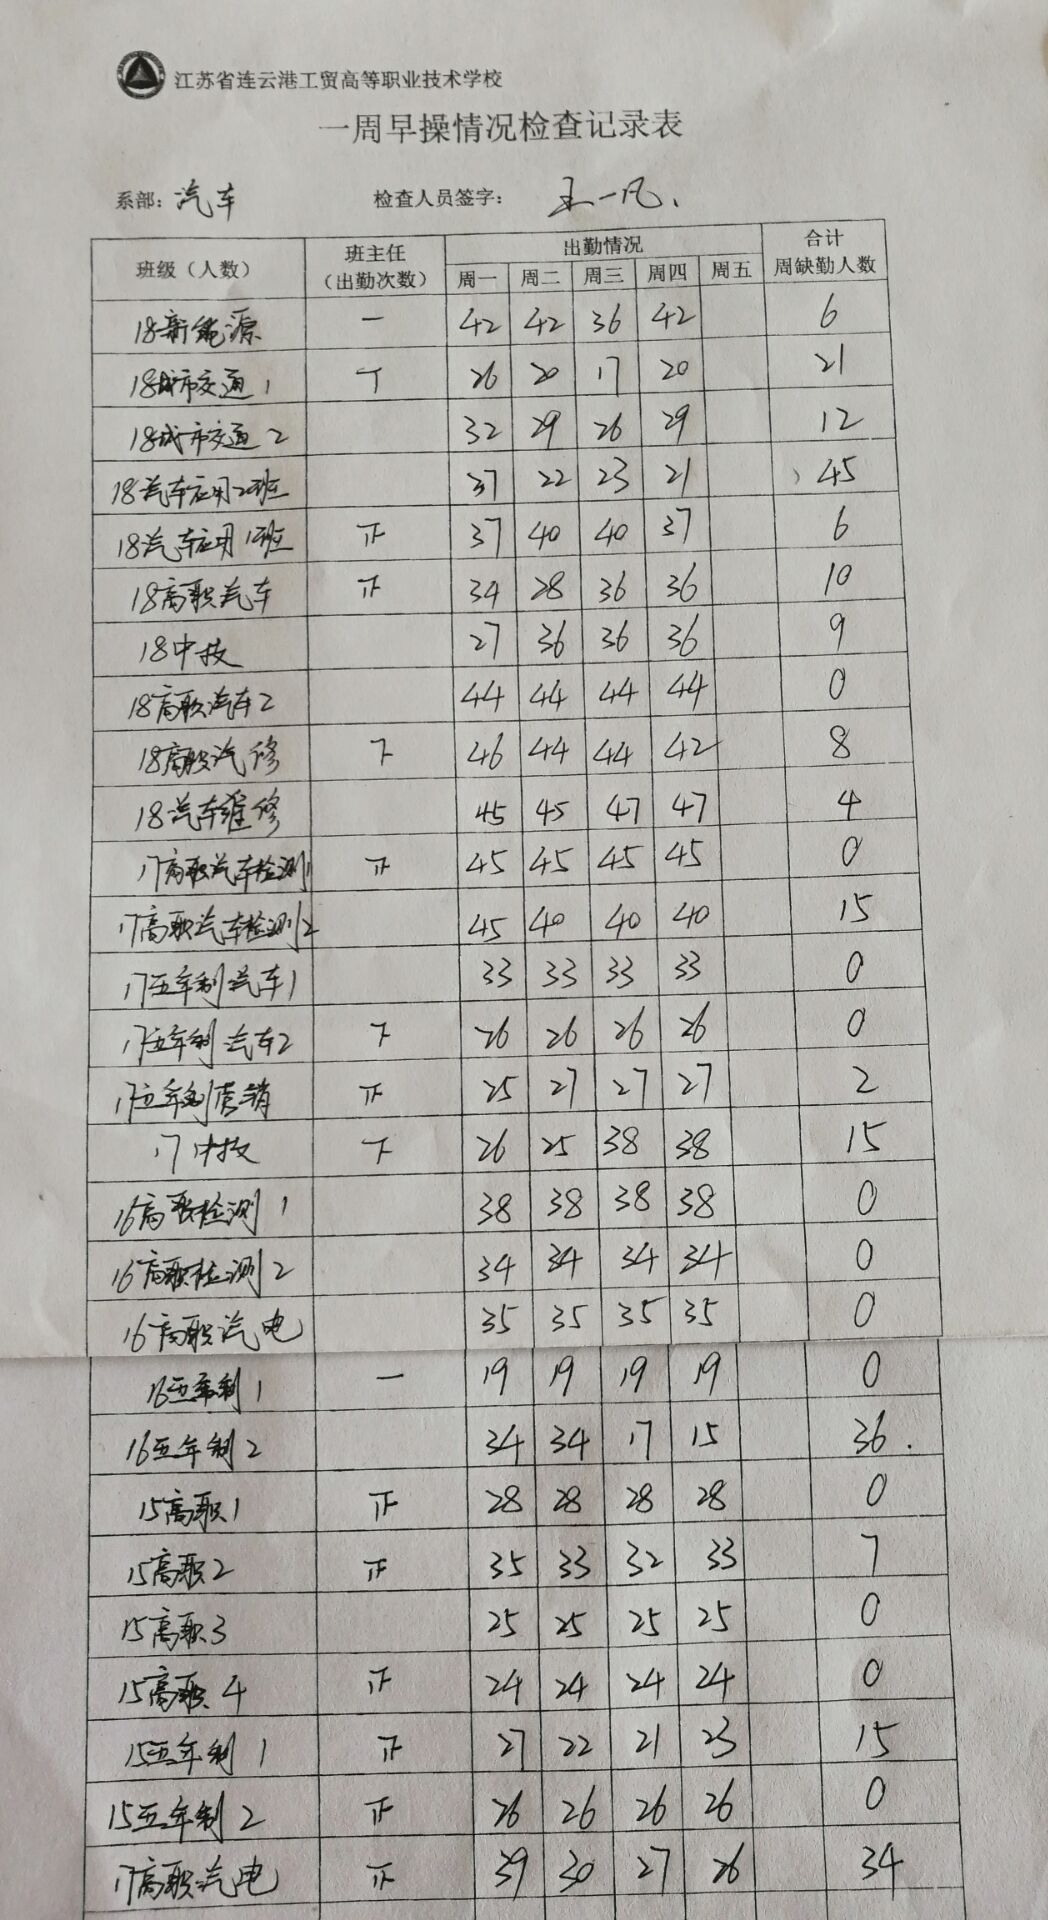 江苏省连云港工贸高等职业技术学校
一周早操情况检查记录表
系部：汽车 检查人员签字：王一凡.
班级（人数） 班主任（出勤次数） 出勤情况 合计周缺勤人数
周一 周二 周三 周四 周五
18新能源 一 42 42 36 42 6
18城市交通1 丅 26 20 17 20 21
18城市交通2 32 29 26 29 12
18汽车应用2班 37 22 23 21 45
18汽车应用1班 正 37 40 40 37 6
18高职汽车 正 34 28 36 36 10
18中技 27 36 36 36 9
18高职汽车2 44 44 44 44 0
18高职汽修 下 46 44 44 42 8
18汽车维修 45 45 47 47 4
17高职汽车检测1 正 45 45 45 45 0
17高职汽车检测2 45 40 40 40 15
17五年制汽车1 33 33 33 33 0
17五年制汽车2 下 26 26 26 26 0
17五年制营销 正 25 27 27 27 2
17中技 下 26 25 38 38 15
16高职检测1 38 38 38 38 0
16高职检测2 34 34 34 34 0
16高职汽电 35 35 35 35 0
16五年制1 一 19 19 19 19 0
16五年制2 34 34 17 15 36.
15高职1 正 28 28 28 28 0
15高职2 正 35 33 32 33 7
15高职3 25 25 25 25 0
15高职4 正 24 24 24 24 0
15五年制1 正 27 22 21 23 15
15五年制2 正 26 26 26 26 0
17高职汽电 正 39 30 27 26 34